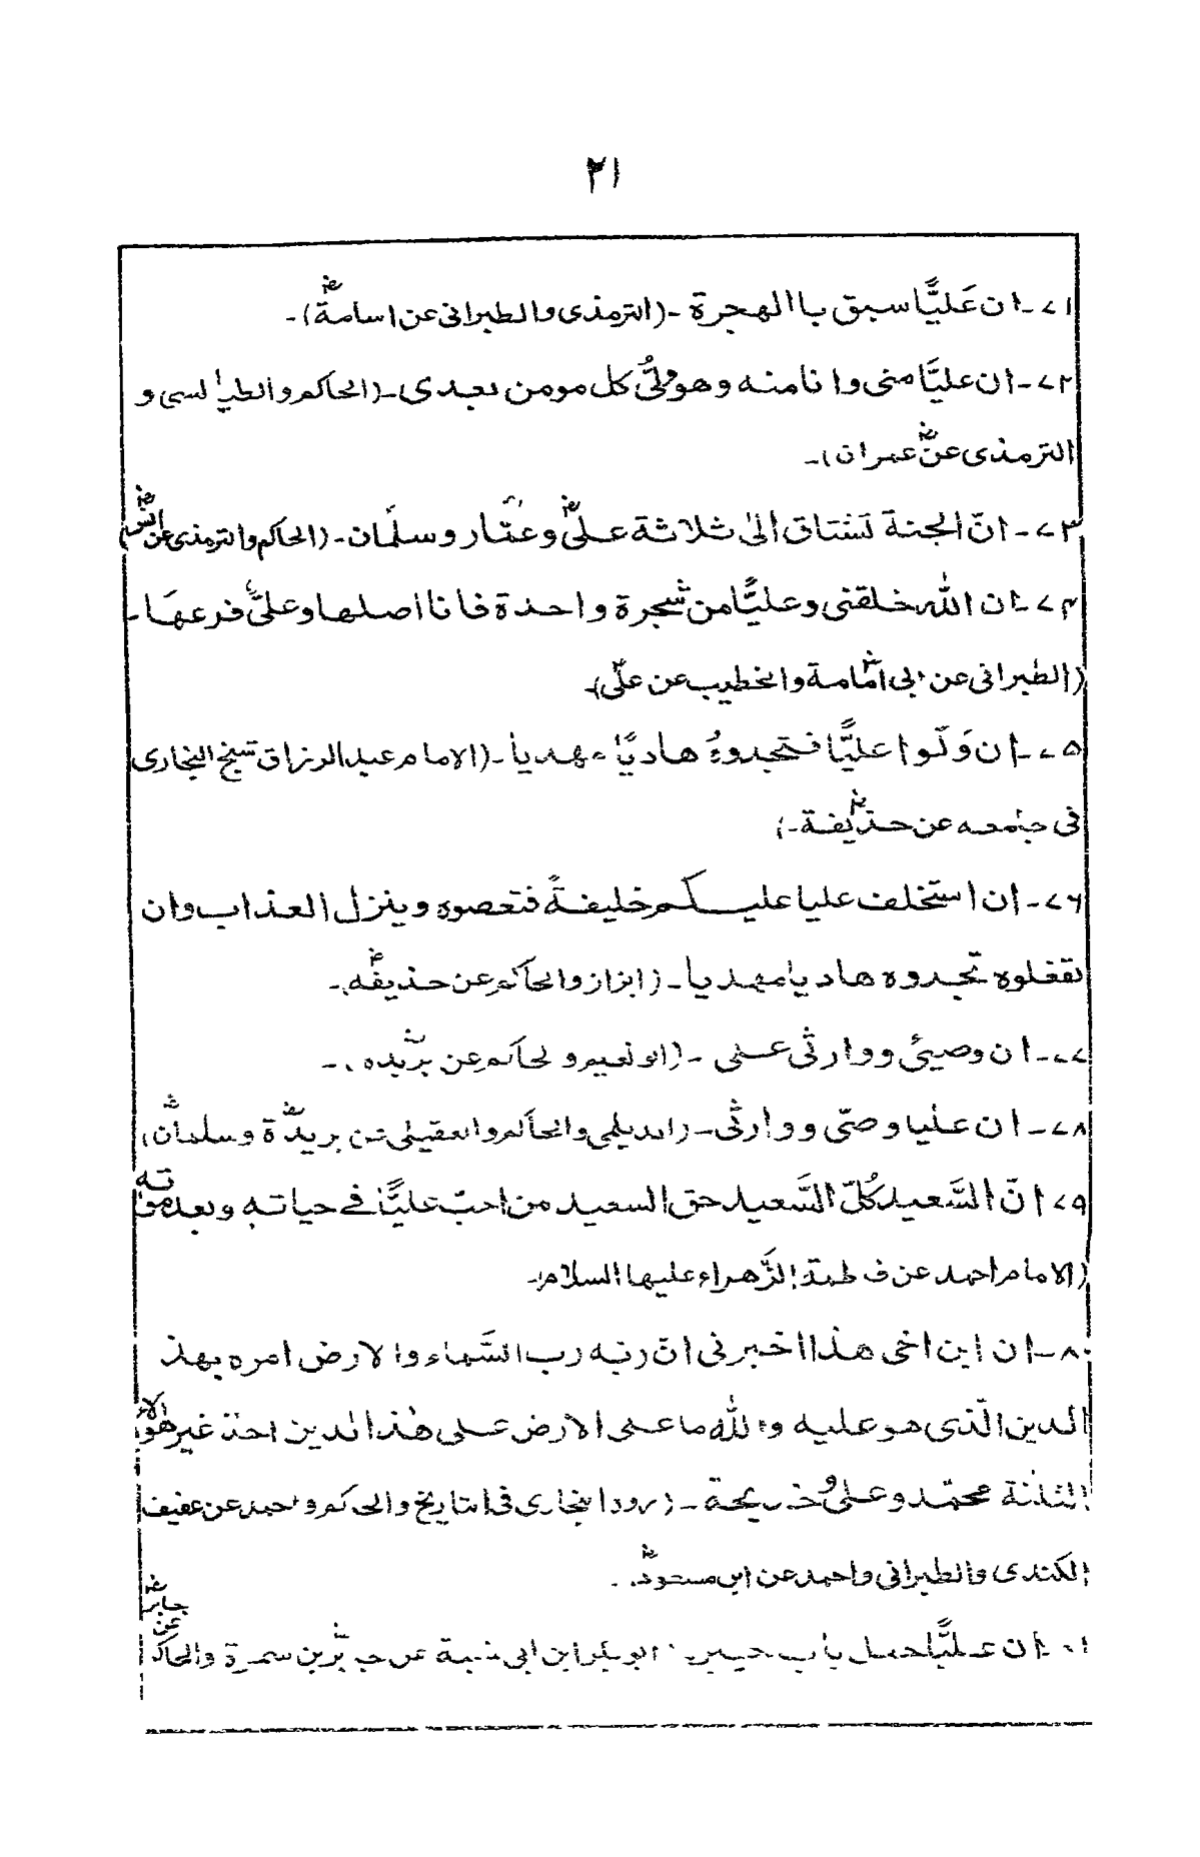 ۲۱
۷۱-ان عَليًّا سبق باالهجرة-(الترمذى والطبرانى عن اسامةؓ)-
۷۲-ان عليًّا منى وانا منه وهو ولىُّ كل مومن بعدى-(الحاكم والطيالسى و
الترمذى عنؓ عمران)-
۷۳-انّ الجنة تشتاق الىٰ ثلاثة علىؓ وعمّار وسلمان-(الحاكم والترمذى عن انسؓ)
۷۴-ان الله خلقنى وعليًّا من شجرة واحدة فانا اصلها وعلىّ فرعهَا-
(الطبرانى عن ابى امامةؓ والخطيب عن علىؓ)-
۷۵-ان وَلّوا عليًّا فتجدوهُ هاديًا مهديا-(الامام عبدالرزاق شيخ البخارى
فى جامعه عن حذيفةؓ-)
۷۶-ان استخلف عليا عليكم خليفةً فتعصوه وينزل العذاب وان
تفعلوه تجدوه هاديا مهديا-(ابزاز والحاكم عن حذيفهؓ)-
۷۷-ان وصيىّ ووارثى على-(ابو نعيم و لحاكم عن بريدهؓ)-
۷۸-ان عليا وصىّ ووارثى-(الديلمى والحاكم والعقيلى عن بريدةؓ وسلمانؓ)
۷۹-انّ السَّعيد كُلّ السَّعيد حق السعيد من احبّ عليًّا فے حياته وبعد موته
(الامام احمد عن فاطمة الزَّهراء عليها السلام)-
۸۰-ان ابن اخى هذا اخبرنى انّ ربّه رب السَّماء والارض امره بهذ
الدين الّذى هو عليه والله ما على الارض على هٰذا الدين احد غير هٰؤلاء
الثلٰثة محمّد وعلى وخديجة-( البخارى فى التاريخ والحاكم و احمد عن عفيف
الكندى والطبرانى واحمد عن ابن مسعودؓ)-
ان عليًّا حمل باب خيبر ابوبكر ابن ابى شيبة عن جابرؓ بن سمرة والحاكم عن جابرؓ